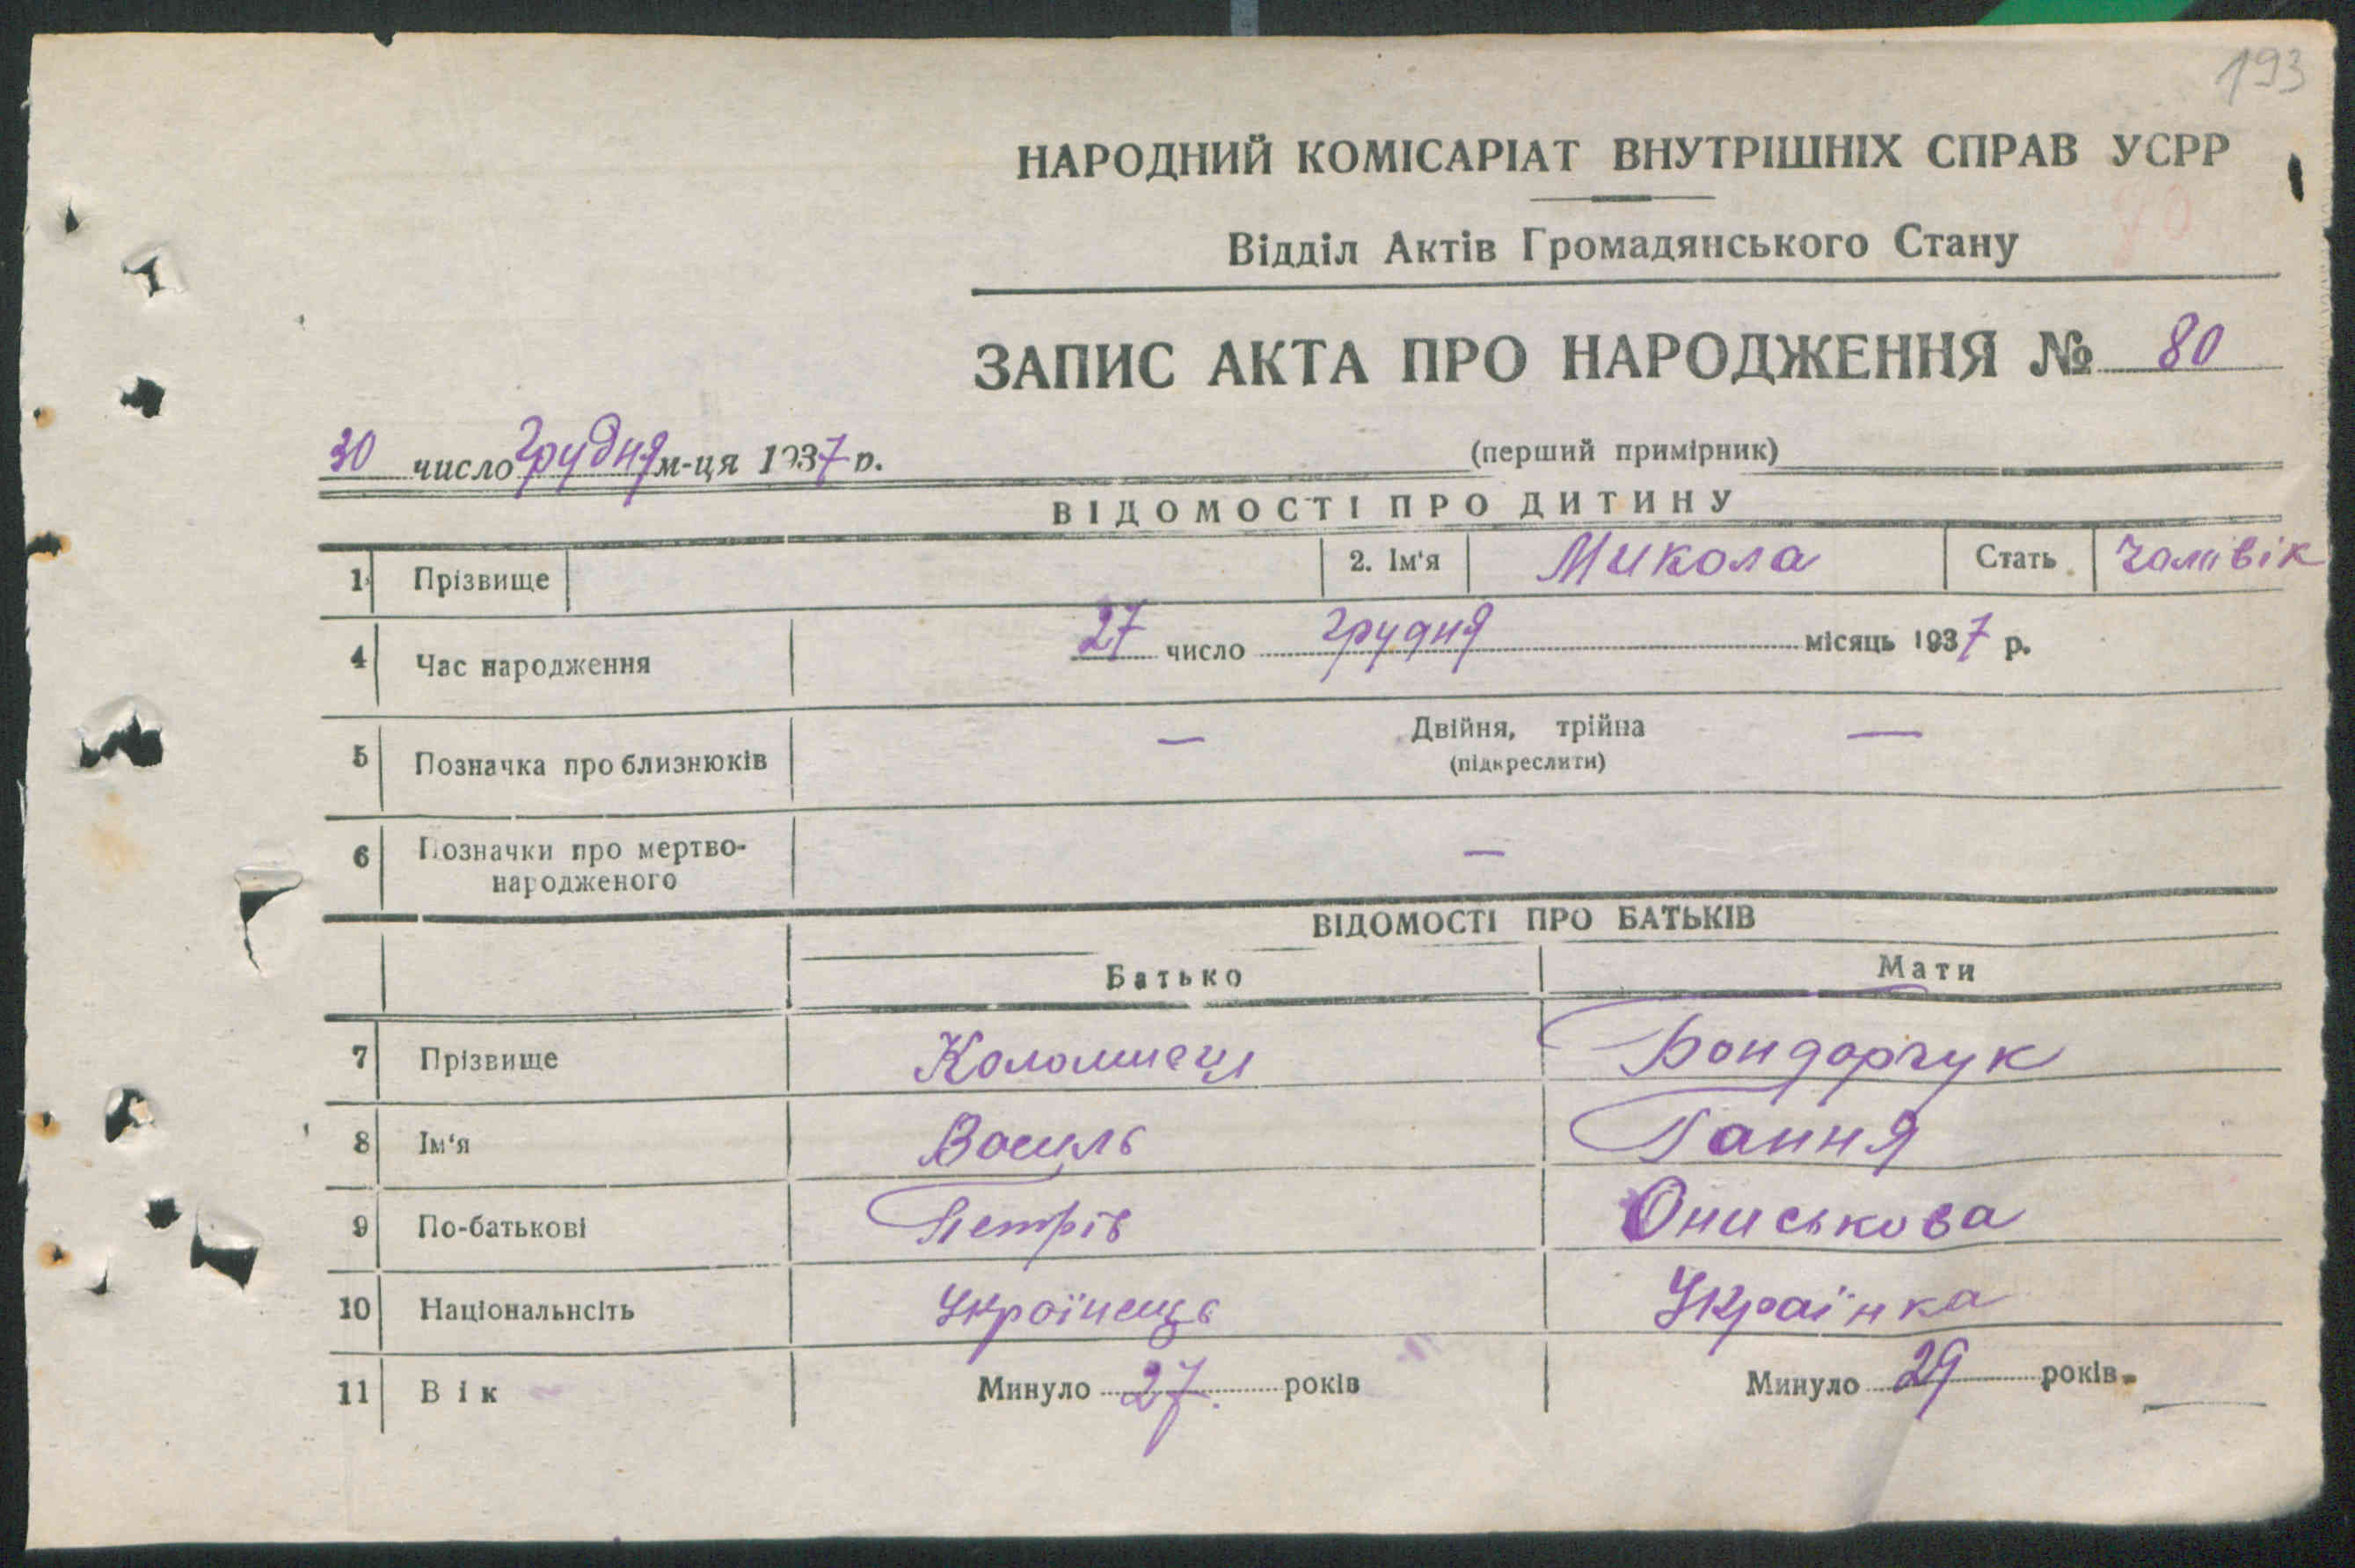 193
НАРОДНИЙ КОМІСАРІАТ ВНУТРІШНІХ СПРАВ УСРР
Відділ Актів Громадянського Стану
ЗАПИС АКТА ПРО НАРОДЖЕННЯ № 80
30 число грудня м-ця 1937 р.
(перший примірник)
ВІДОМОСТІ ПРО ДИТИНУ
1 Прізвище 2. Ім'я Микола Стать чоловік
4 Час народження 27 число грудня місяць 1937 р.
5 Позначка про близнюків — Двійня, трійна —
(підкреслити)
6 Позначки про мертво-
народженого —
ВІДОМОСТІ ПРО БАТЬКІВ
Батько Мати
7 Прізвище Коломиець Бондорчук
8 Ім'я Василь Гання
9 По-батькові Петрів Ониськова
10 Національнсіть Українець Українка
11 Вік Минуло 27. років Минуло 29 років.